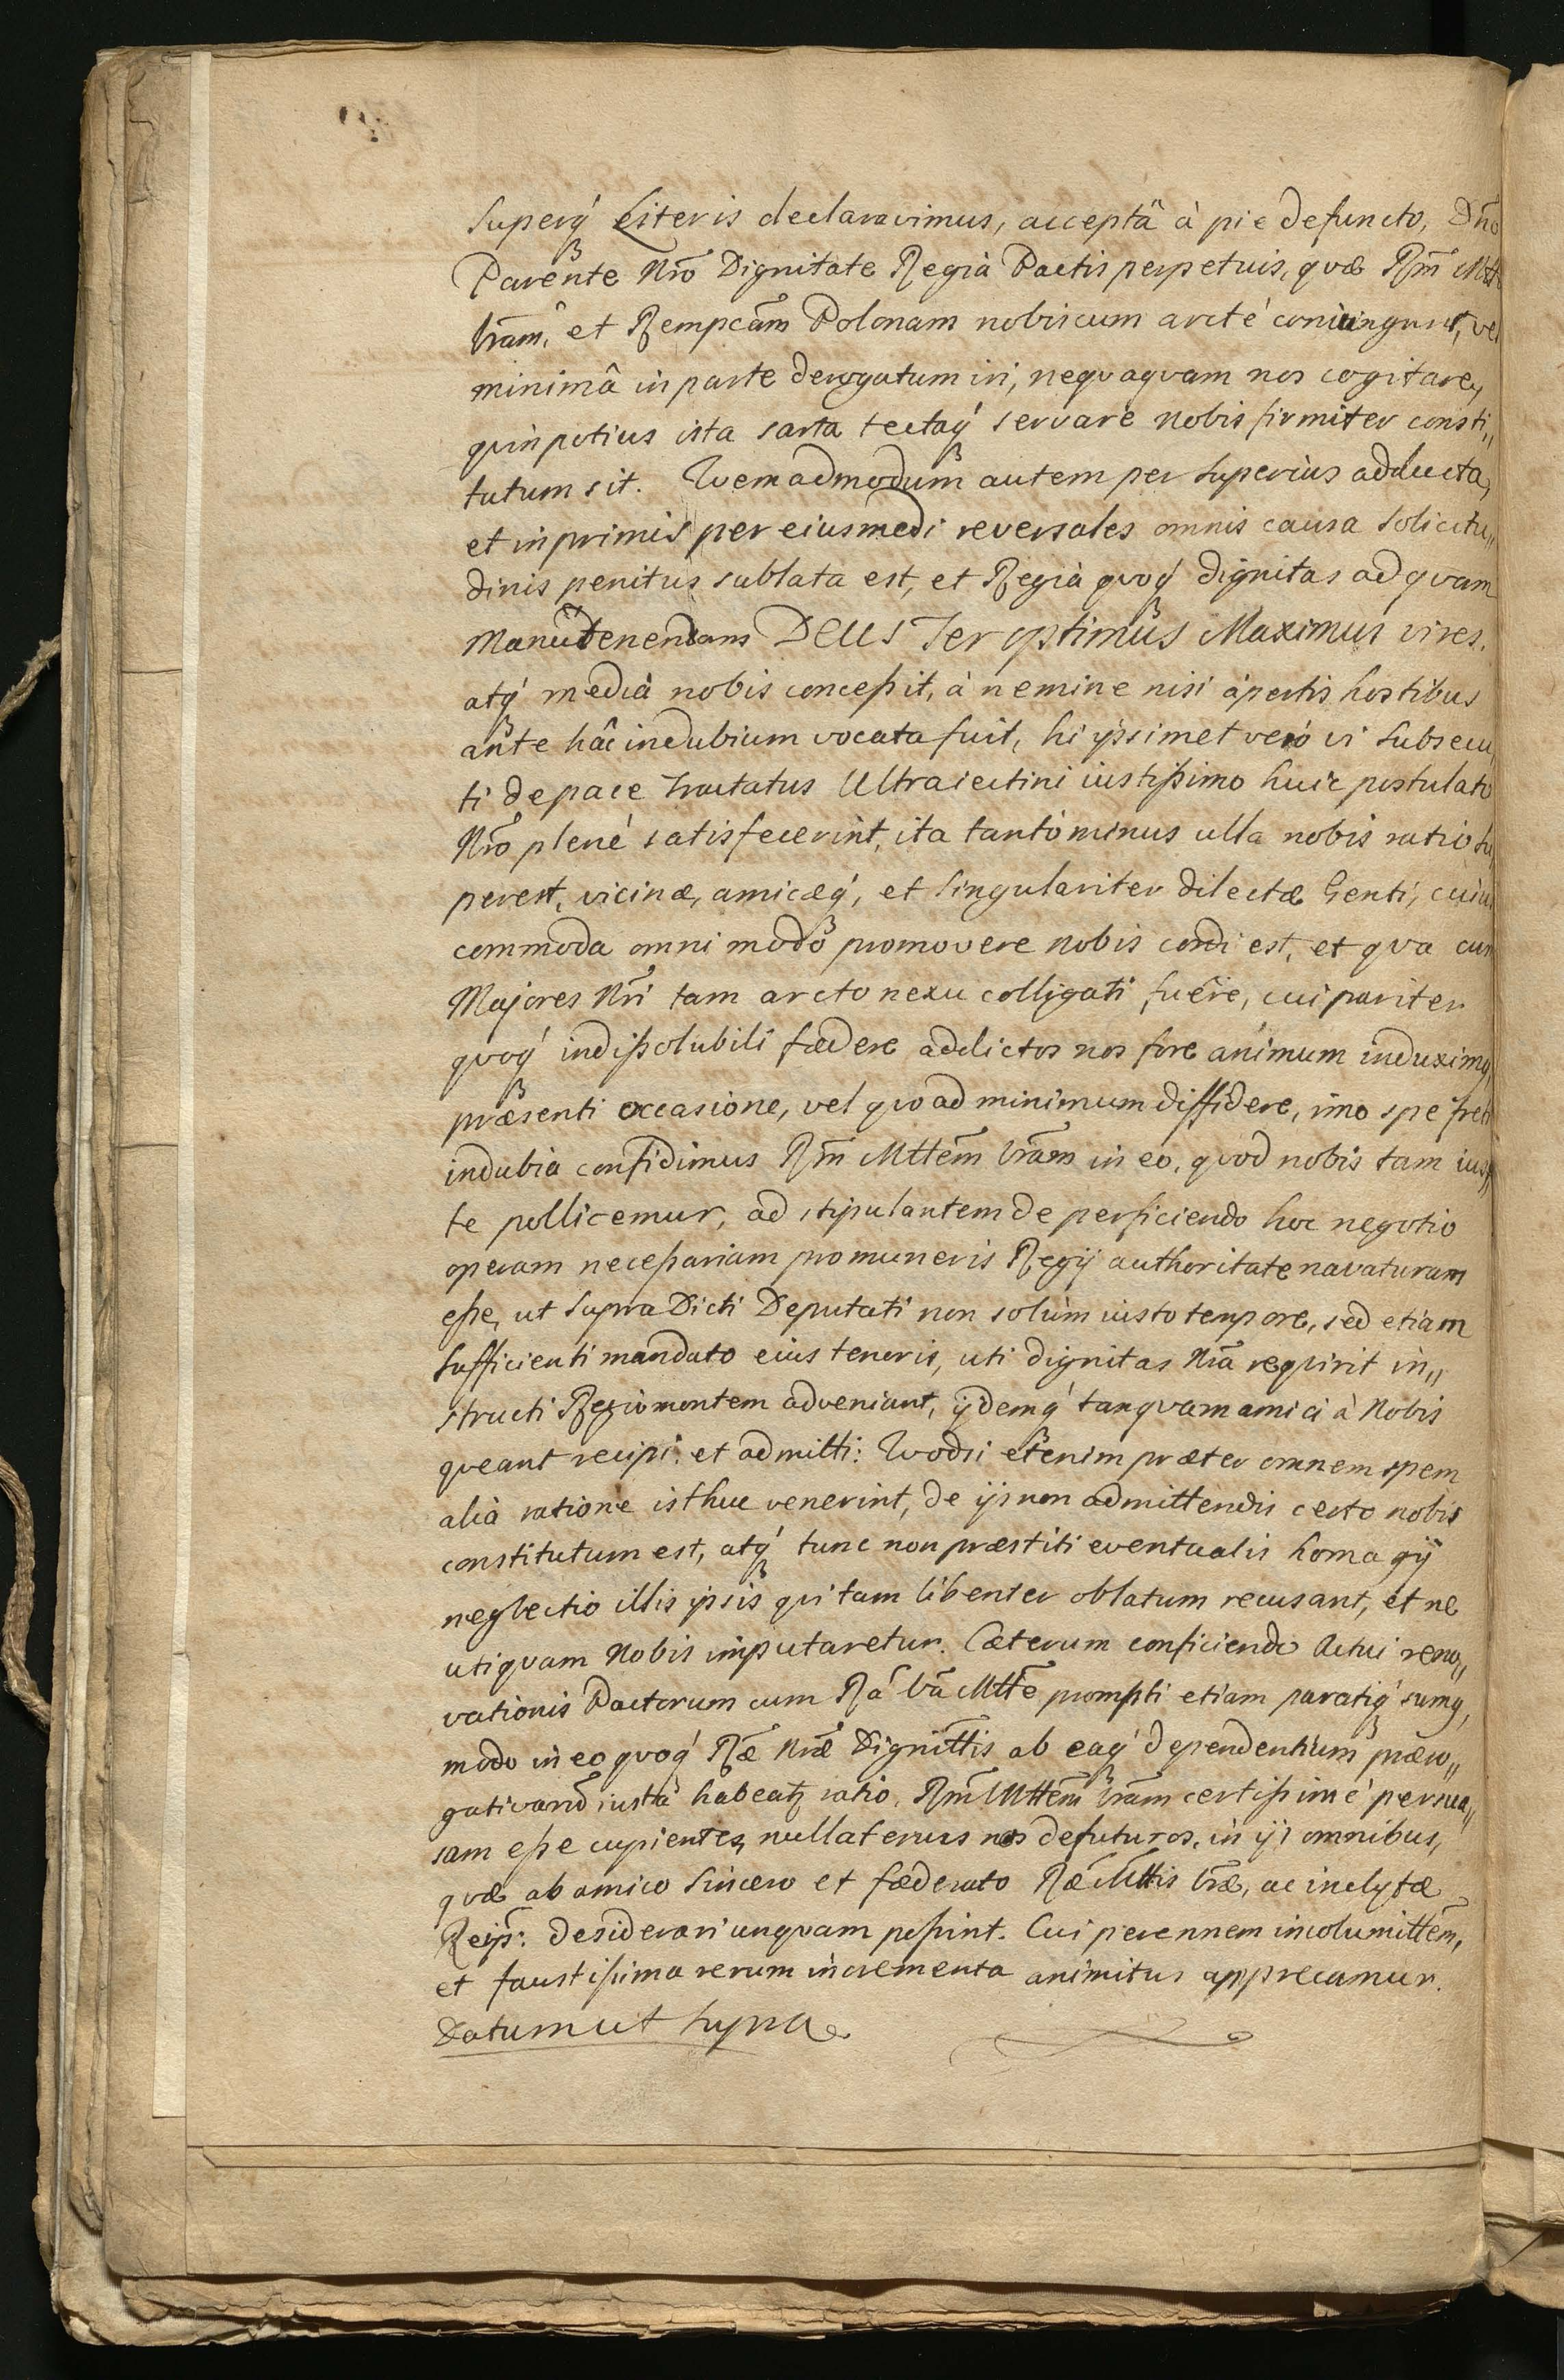 superq́ Literis declaravimus, acceptâ à pie defuncto, Dño
Parente Nrõ Dignitate Regiâ Pactis perpetuis, quæ Rm̃ Mtt
Vram̃, et Rempcãm Polonam nobiscum arcté coniungunt, vel
minimâ in parte derogatum iri, nequaquam nos cogitare,
quin potius ista sarta tectaq́ servare nobis firmiter consti„
tutum sit. Quemadmodum autem per superius adducta,
et inprimis per eiusmodi reversales omnis causa solicitu„
dinis penitus sublata est, et Regià quoq́ dignitas ad quam
manutenendam DEUS Ter optimus Maximus vires,
atq́ media nobis conceßit, à nemine nisi apertis hostibus
ante hâc in dubium vocata fuit, hi ipsimet verò vi subsecu„
ti de pace Tractatus Ultraiectini iustißimo huic postulato
Nrõ plené satisfecerint, ita tantò minus ulla nobis ratio su„
perest, vicinæ, amicæq́, et singulariter dilectæ Genti, cuius
commoda omni modo promovere nobis cordi est, et qua cum
Majores Nrĩ tam arcto nexu colligati fuêre, cui pariter
quoq́ indißolubili fœdere addictos nos fore animum induximq,
præsenti occasione, vel quo ad minimum diffidere, imo spe freti
indubia confidimus Rm̃ Mttem̃ Vram̃ in eo, quod nobis tam iuʃ„
te pollicemur, ad stipulantem de perficiendo hoc negotio
operam neceßariam pro muneris Regij authoritate navaturam
eße, ut supra Dicti Deputati non solùm iusto tempore, sed etiam
sufficienti mandato eius tenoris, uti dignitas Nrã requirit in„
structi Regiomontem adveniant, ijdemq́ tanquam amici à Nobis
queant recipi et admitti: Quodsi etenim præter omnem spem
aliâ ratione isthuc venerint, de ijs non admittendis certo nobis
constitutum est, atq́ tunc non præstiti eventualis homagij
neglectio illis ipsis qui tam libenter oblatum recusant, et ne
utiquam Nobis imputaretur. Cæterum conficiendo Actui reno„
vationis Pactorum cum Rã Vrã Mttẽ prompti etiam paratiq́ sumq,
modo in eo quoq́ Ræ̃ Nræ̃ Dignittis ab eaq́ dependentium præro„
gativarũ iusta habeatʒ ratio, Rm̃ Mttem̃ Vram̃ certißimé persua„
sam eße cupientes, nullatenus nos defuturos, in ijs omnibus,
quæ ab amico sincero et fœderato Ræ̃ Mttis Vræ̃, ac inclytæ
Reip̃: desiderari unquam poßint. Cui perennem incolumittem̃,
et faustißima rerum incrementa animitus apprecamur.
Datum ut supra